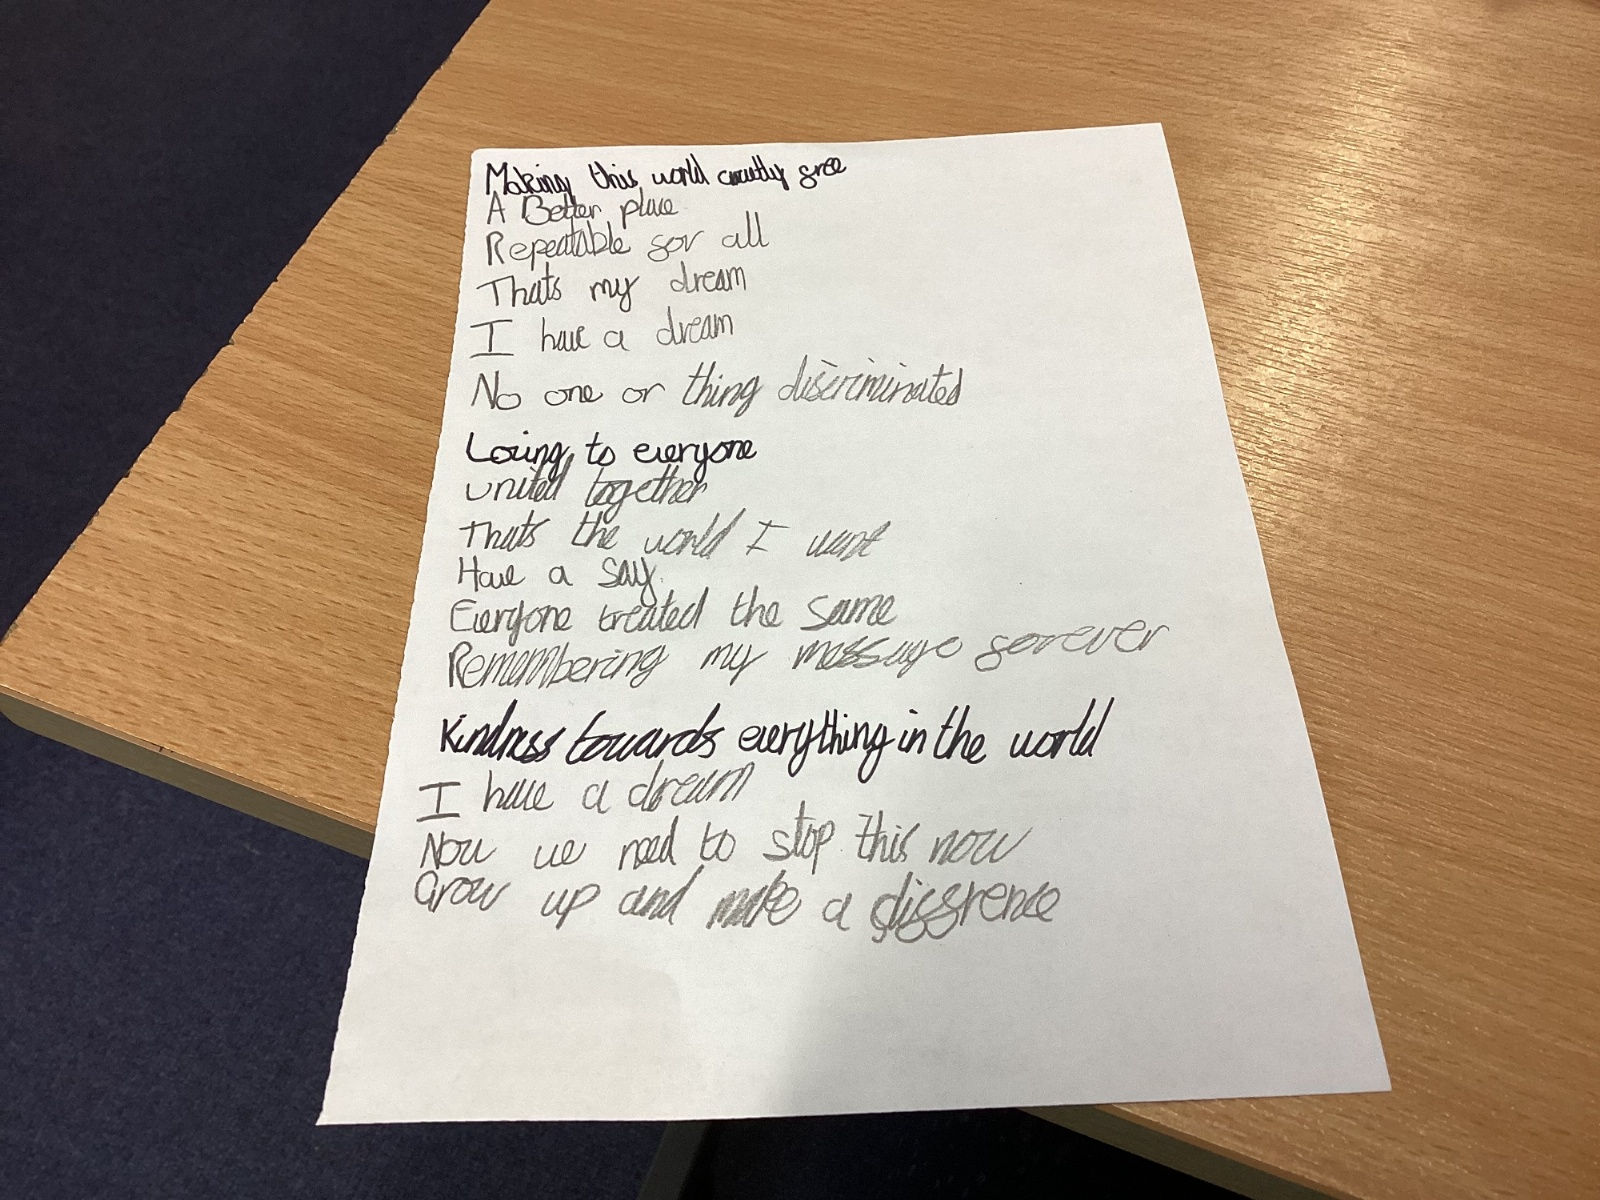 Making this world cruelty free
A Better place
Repeatable for all
Thats my dream
I have a dream
No one or thing discriminated
Loving to everyone
united together
Thats the world I want
Have a say.
Everyone treated the same
Remembering my message forever
Kindness towards everything in the world
I have a dream
Now we need to stop this now
Grow up and make a diffrence